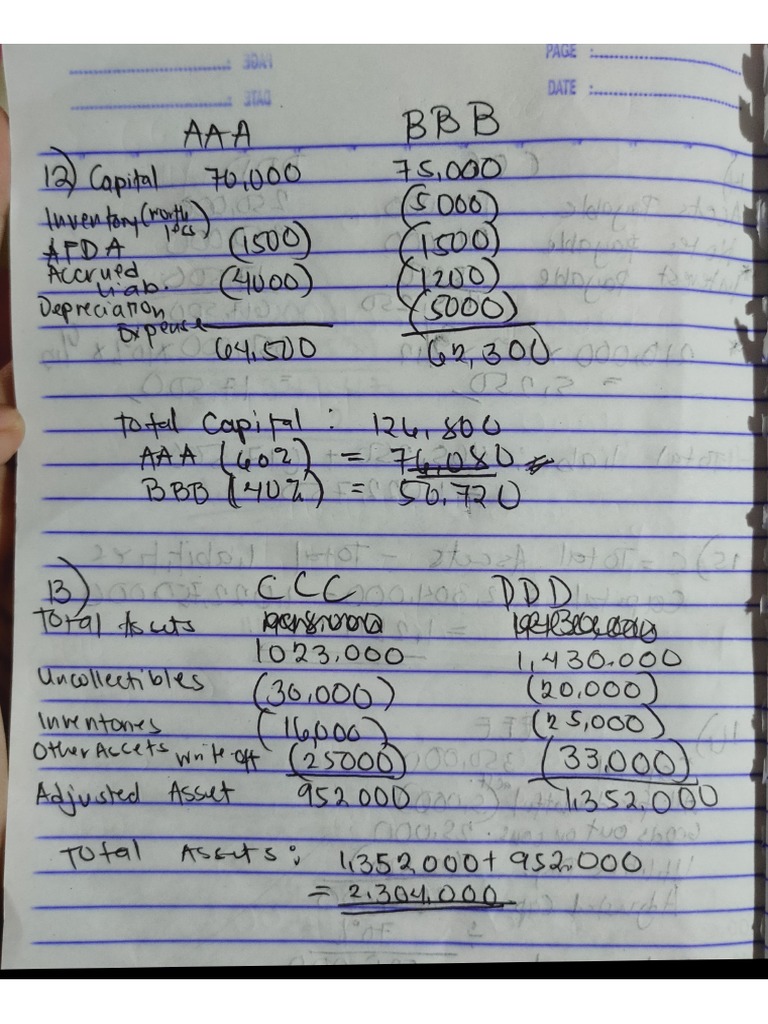 PAGE :
DATE :
AAA BBB
12) Capital 70,000 75,000
Inventory (worth less) (5000)
AFDA (1500) (1500)
Accrued Liab. (4000) (1200)
Depreciation Expense (5000)
64,500 62,300
Total Capital : 126,800
AAA (60%) = 76,080
BBB (40%) = 50,720
13) CCC DDD
Total Assets
1023,000 1,430.000
Uncollectibles (30,000) (20,000)
Inventories (16,000) (25,000)
Other Assets write-off (25000) (33,000)
Adjusted Asset 952000 1,352,000
Total Assets: 1,352,000 + 952,000
= 2,304,000